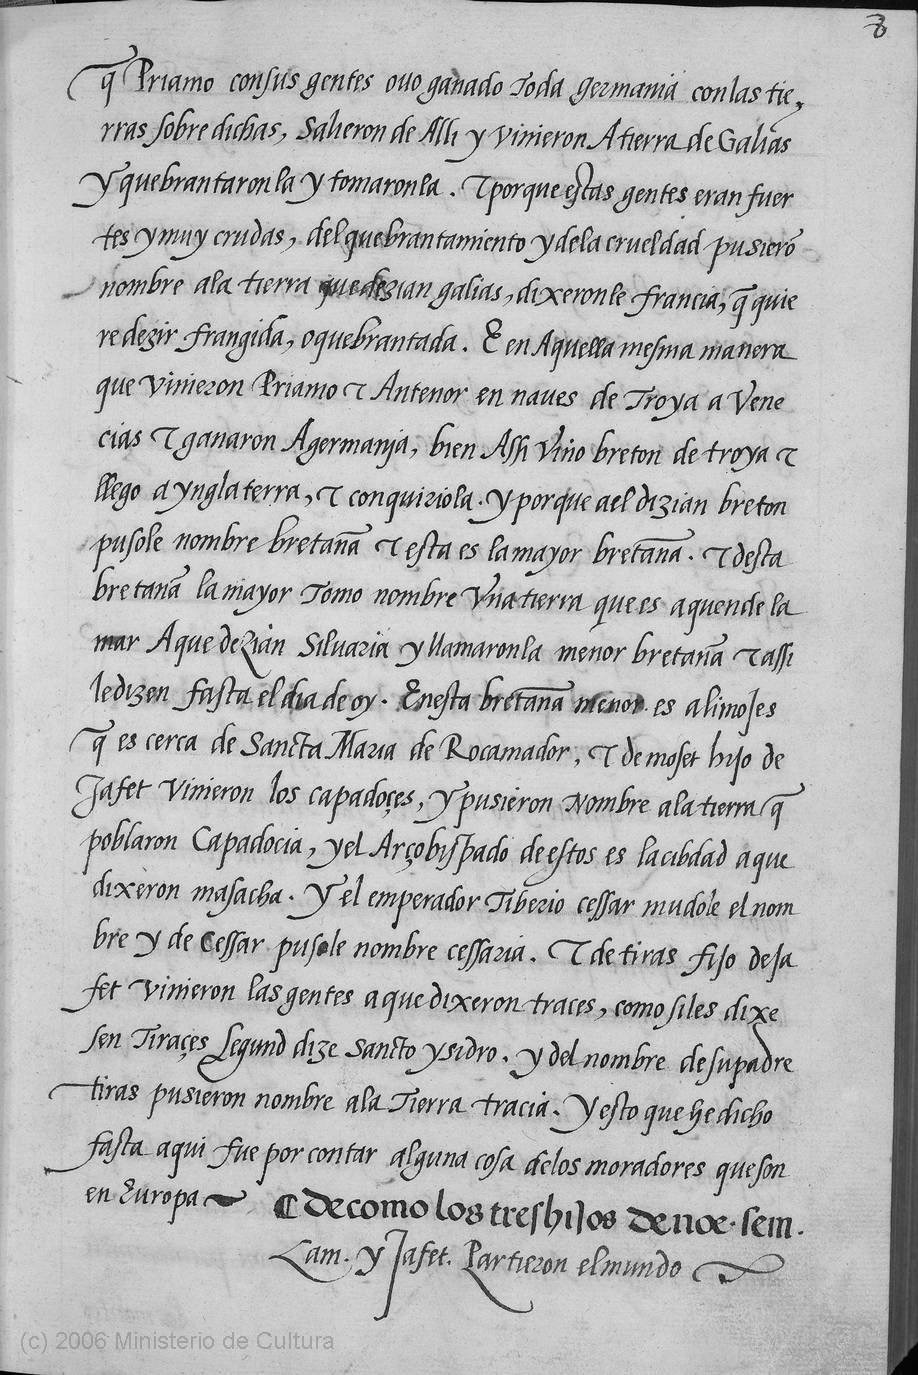 8
q̃ Priamo consus gentes ouo ganado Toda germania conlas tie,
rras sobre dichas, Salieron de Alli y vinieron A tierra de Galias
Y quebrantaronla y tomaronla. τ porque estas gentes eran fuer
tes y muy crudas, del quebrantamiento y dela crueldad pusierõ
nombre ala tierra que dezian galias, dixeronle francia, q̃ quie
re dezir frangida, o quebrantada. E en Aquella mesma manera
que vinieron Priamo τ Antenor en naues de Troya a Vene
cias τ ganaron Agermania, bien Assi vino breton de troya τ
llego a ynglaterra, τ conquiriola. y porque a el dizian breton
pusole nombre bretaña τ esta es la mayor bretaña. τ desta
bretaña la mayor Tomo nombre Vna tierra que es aquende la
mar Aque dezian Siluaria y llamaronla menor bretaña τ assi
le dizen fasta el dia de oy. En esta bretaña menor es alimojes
q̃ es cerca de Sancta Maria de Rocamador, τ de moset hijo de
Jafet vinieron los capadoçes, Y pusieron Nombre ala tierra q̃
poblaron Capadocia, y el Arçobispado de estos es la cibdad a que
dixeron masacha. Y el emperador Tiberio cessar mudole el nom
bre y de Cessar pusole nombre cessaria. τ de tiras fijo de Ja
fet vinieron las gentes a que dixeron traces, como si les dixe
sen Tiraçes Segund dize Sancto ysidro. y del nombre de su padre
tiras pusieron nombre ala Tierra tracia. Y esto que he dicho
fasta aqui fue por contar alguna cosa delos moradores que son
en Europa
de como los tres hijos de noe. sem.
Cam. y Jafet. Partieron el mundo
(c) 2006 Ministerio de Cultura